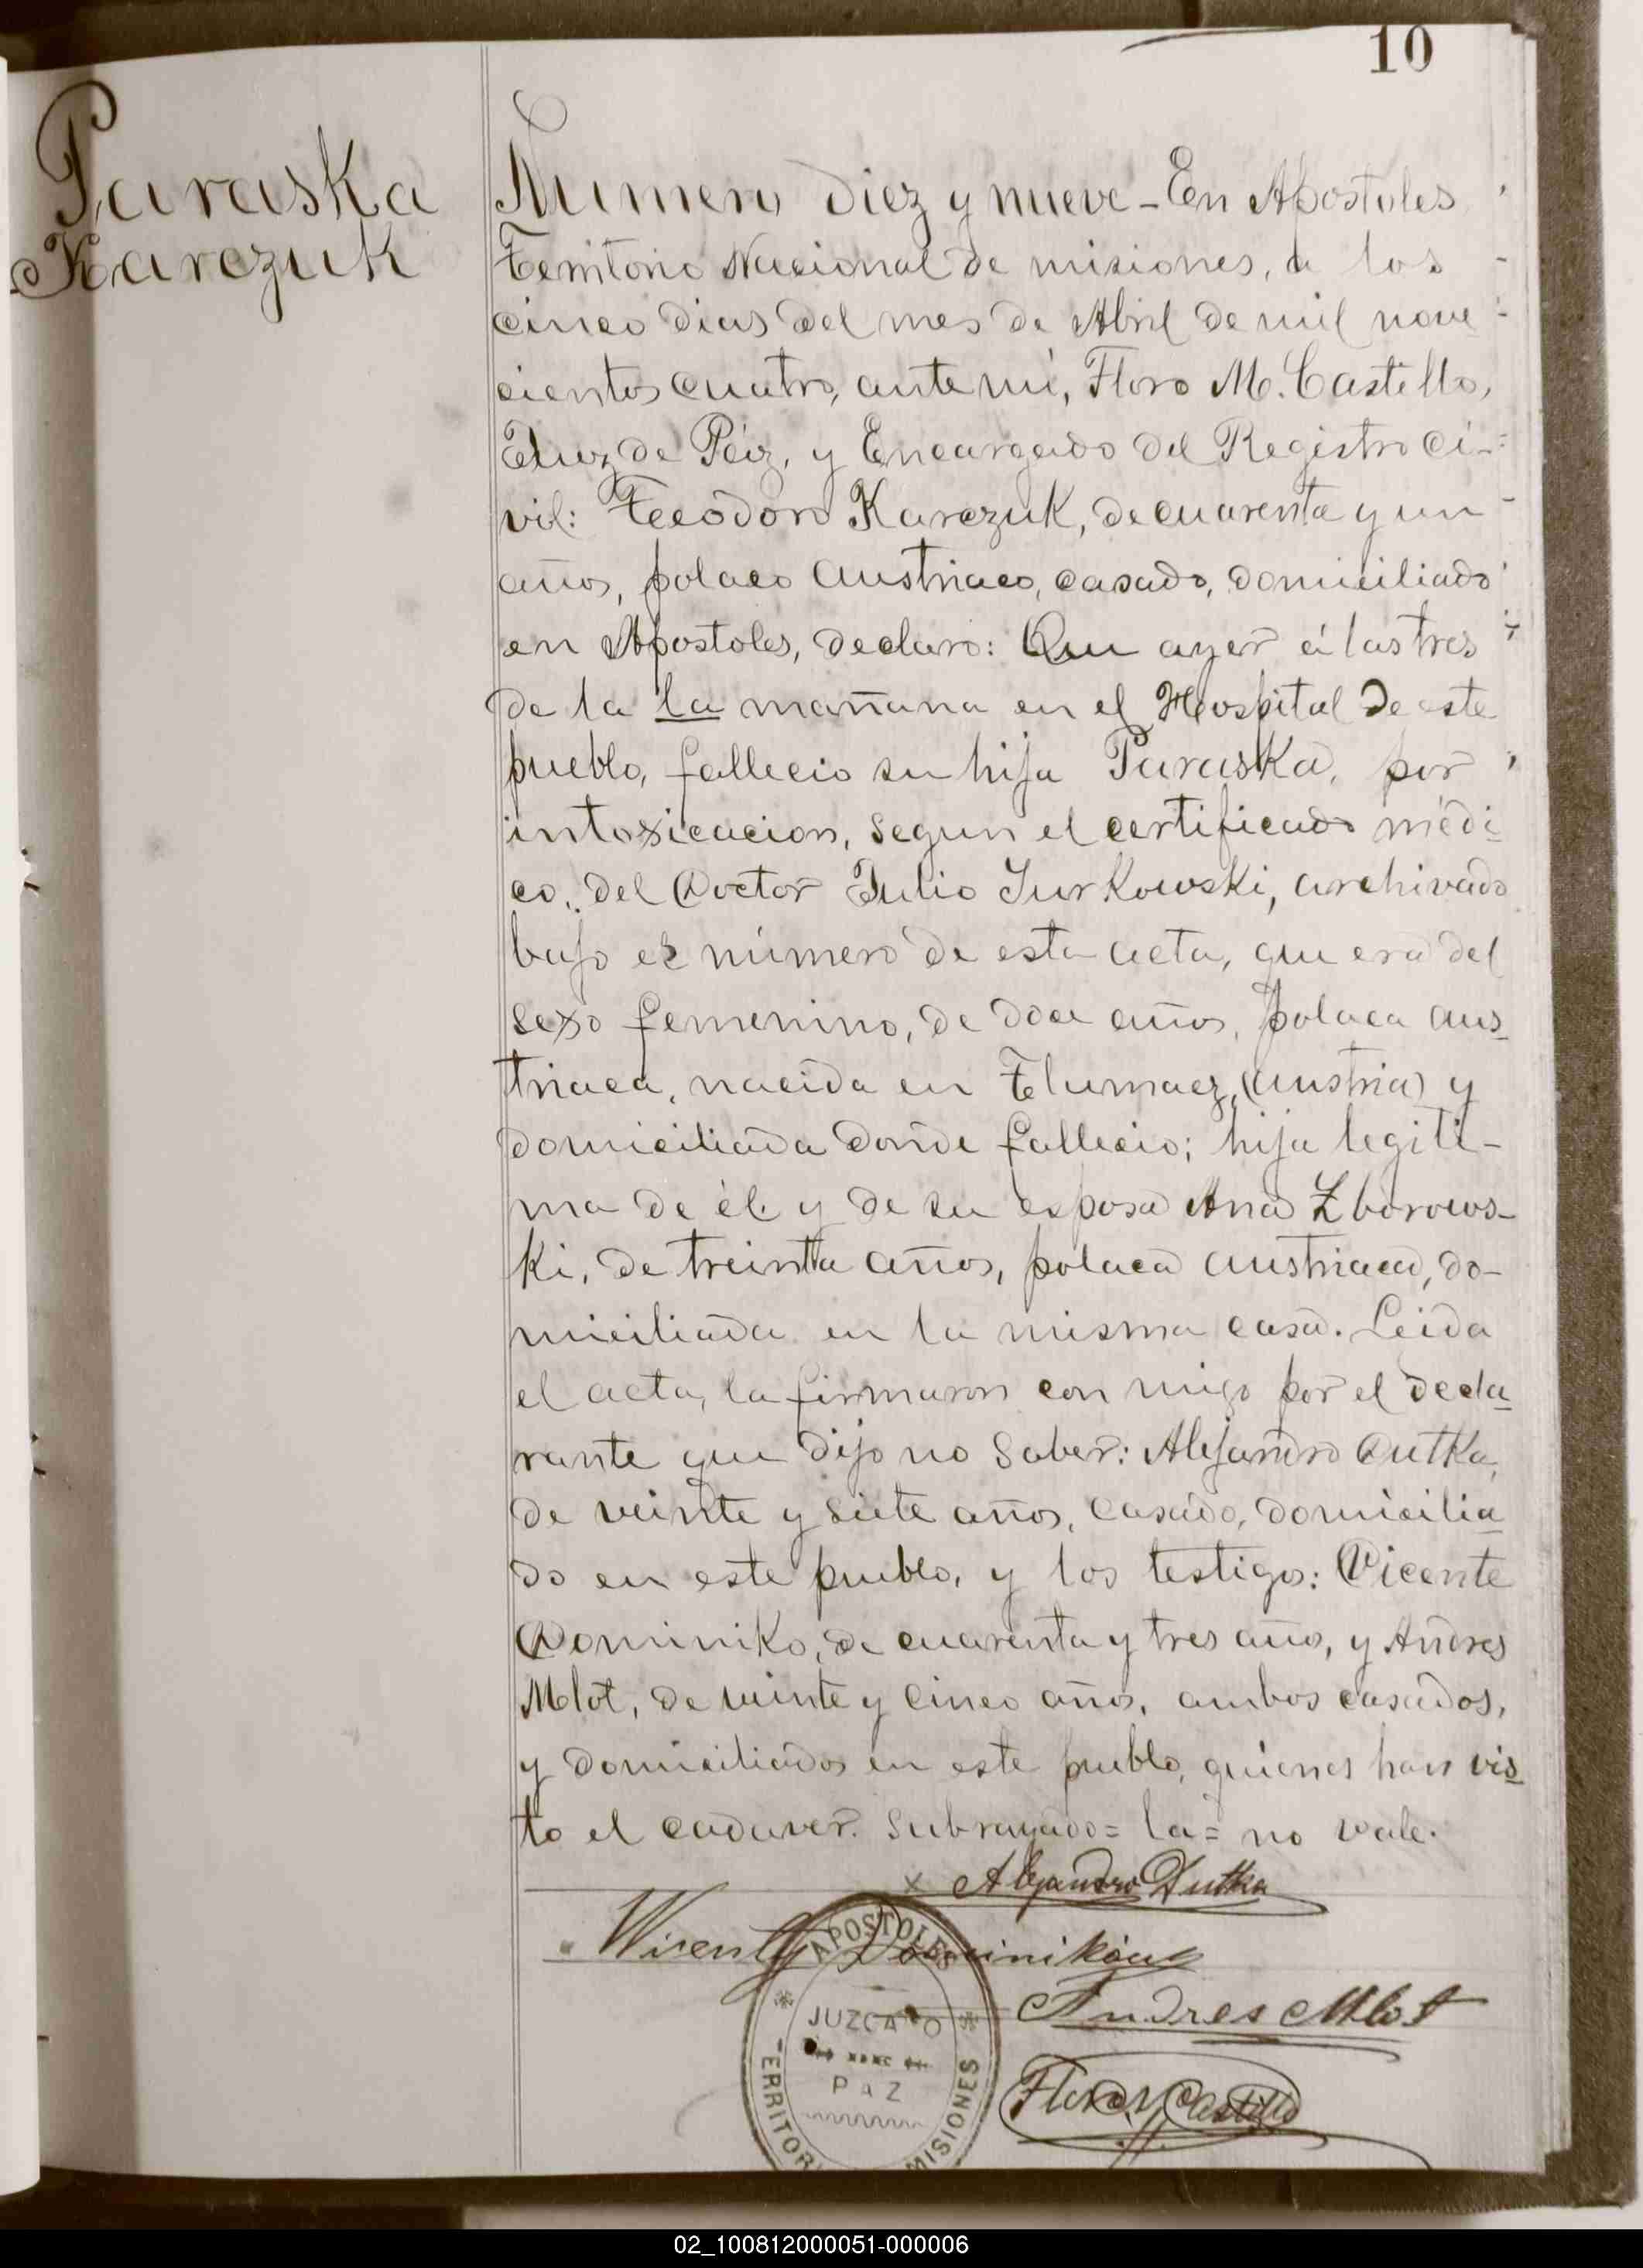 10
Paraska
Karczuk
Numero diez y nueve - En Apostoles
Territorio Nacional de misiones, a los
cinco dias del mes de Abril de mil nove
cientos cuatro, ante mi, Floro M. Castillo,
Juez de Páz, y Encargado del Registro Ci-
vil: Teodoro Karczuk, de cuarenta y un
años, polaco austriaco, casado, domiciliado
en Apostoles, declaro: Que ayer á las tres
de la la mañana en el Hospital de este
pueblo, fallecio su hija Paraska, por
intoxicacion, segun el certificado médi-
co, del Doctor Julio Jurkowski, archivado
bajo el número de esta acta, que era del
sexo femenino, de doce años, polaca aus-
triaca, nacida en Tlumacz, (Austria) y
domiciliada donde fallecio; hija legiti-
ma de él y de su esposa Ana Zborows-
ki, de treinta años, polaca austriaca, do-
miciliada en la misma casa. Leida
el acta, la firmaron con migo por el decla-
rante que dijo no saber: Alejandro Dutka,
de veinte y siete años, casado, domicilia-
do en este pueblo, y los testigos: Vicente
Dominiko, de cuarenta y tres años, y Andres
Mlot, de veinte y cinco años, ambos casados,
y domiciliados en este pueblo, quienes han vis-
to el cadaver. Subrayado = la = no vale.
x Alejandro Dutka
Wicenty
Andres Mlot
Floro M. Castillo
APOSTOLES
JUZGADO
PAZ
TERRITORIO MISIONES
02_100812000051-000006